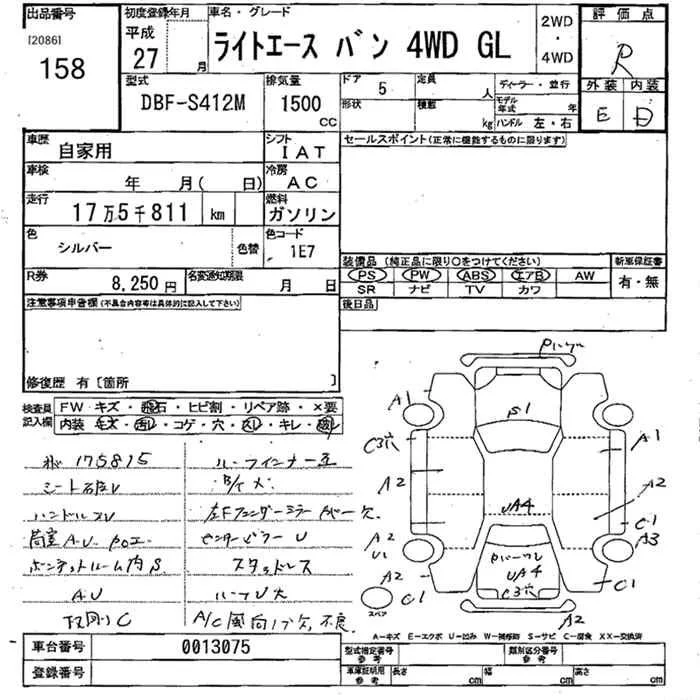 出品番号
[2086]
158
初度登録年月
平成
27 月
車名・グレード
ライトエース バン 4WD GL
2WD
・
4WD
評価点
R
外装 内装
E D
型式
DBF-S412M
排気量
1500
CC
ドア 5
定員 人
形状
積載 kg
ディーラー・並行
モデル年式 年
ハンドル 左・右
車歴
自家用
シフト
IAT
セールスポイント(正常に機能するものに限ります)
車検
年 月( 日)
冷房
AC
走行
17万5千811 km
燃料
ガソリン
色
シルバー
色替
色コード
1E7
R券
8,250円
名変通知期限
月 日
装備品 (純正品に限り○をつけてください)
PS PW ABS エアB AW
SR ナビ TV カワ
新車保証書
有・無
後日品
注意事項申告欄(不具合内容等は具体的に記入して下さい)
修復歴 有[箇所 ]
検査員記入欄
FW キズ・飛石・ヒビ割・リペア跡・×要
内装 キズ・汚レ・コゲ・穴・スレ・キレ・破レ
175815
シート破レ
ハンドルスレ
荷室A.U.
ボンネットルーム内S
A.U
下廻リC
ルーフインナー
左Fフェンダーミラーカバー欠
センターピラーU
スタッドレス
ルーフU大
A/C風向ノブ欠、不良
A1
S1
A1
C3穴
A2
A2
UA4
C1
A2
U1
A3
UA4
C3穴
A2
C1
C1
A2
スペア
A-キズ E-エクボ U-凹み W-補修跡 S-サビ C-腐食 XX-交換済
車台番号
0013075
登録番号
型式指定番号
参考
類別区分番号
参考
車庫証明用
参考
長さ cm
幅 cm
高さ cm